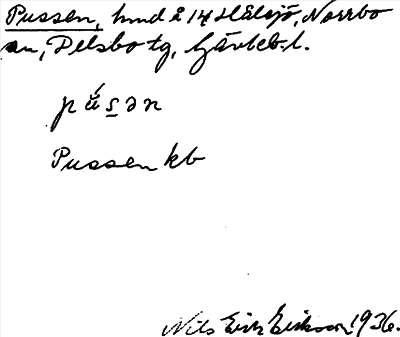 Pussen, hmd å 14 Hålsjö, Norrbo
sn, Delsbo tg, Gävleb. l.
pùsən
Pussen kb
Nils Erik Eriksson 1936.